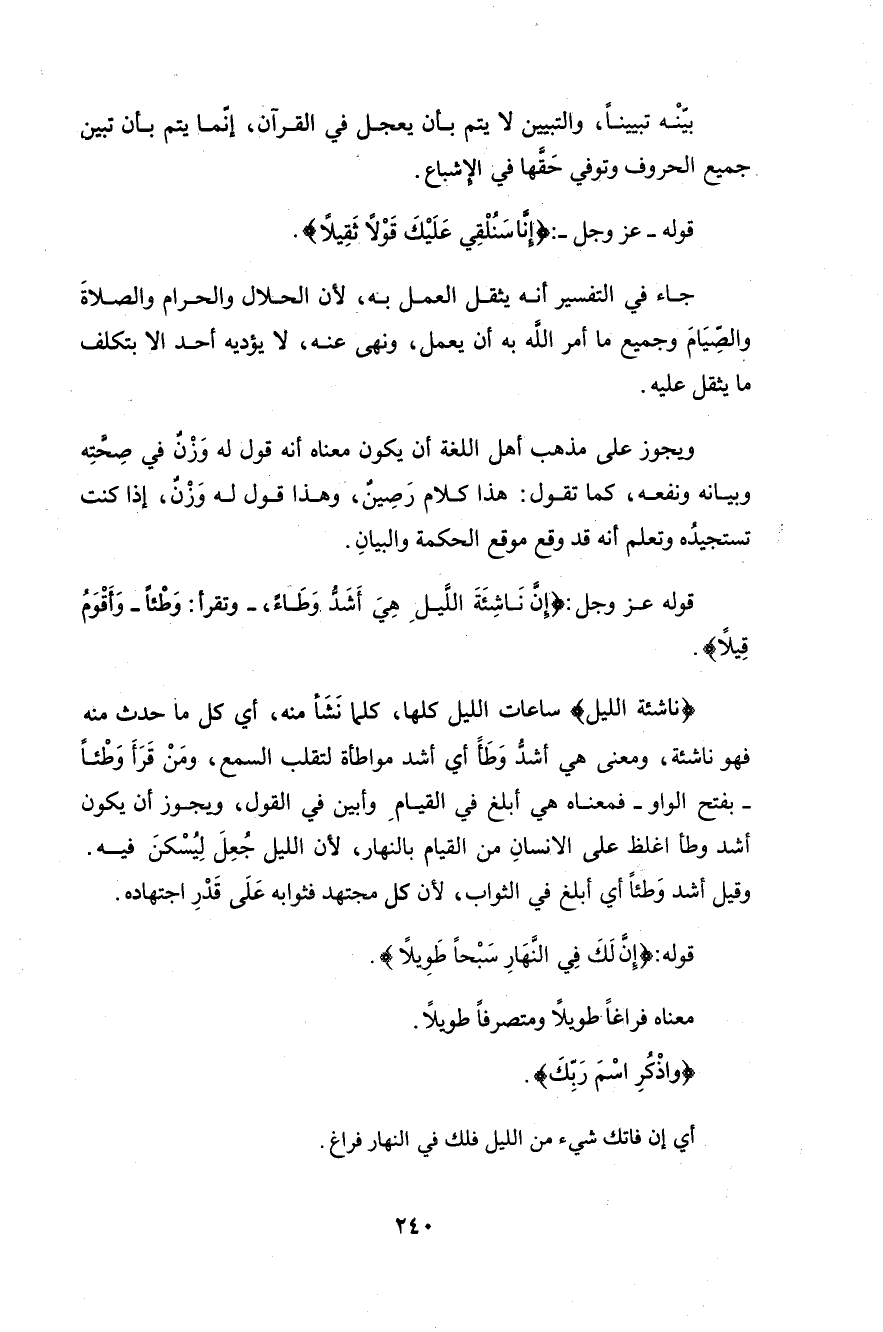 بيّنْه تبييناً، والتبيين لا يتم بأن يعجل في القرآن، إنّما يتم بأن تبين
جميع الحروف وتوفي حَقَّها في الإشباع.
قوله ـ عز وجل ـ:﴿إِنَّا سَنُلْقِي عَلَيْكَ قَوْلًا ثَقِيلًا﴾.
جاء في التفسير أنه يثقل العمل به، لأن الحلال والحرام والصلاةَ
والصِّيَامَ وجميع ما أمر اللَّه به أن يعمل، ونهى عنه، لا يؤديه أحد الا بتكلف
ما يثقل عليه.
ويجوز على مذهب أهل اللغة أن يكون معناه أنه قول له وَزْنٌ في صِحَّتِه
وبيانه ونفعه، كما تقول: هذا كلام رَصِينٌ، وهذا قول له وَزْنٌ، إذا كنت
تستجيدُه وتعلم أنه قد وقع موقع الحكمة والبيانِ.
قوله عز وجل:﴿إِنَّ نَاشِئَةَ اللَّيلِ هِيَ أَشَدُّ وَطَاءً، ـ وتقرأ: وَطْئاً ـ وَأَقْوَمُ
قِيلًا﴾.
﴿ناشئة الليل﴾ ساعات الليل كلها، كلما نَشَأ منه، أي كل ما حدث منه
فهو ناشئة، ومعنى هي أشدُّ وَطَأً أي أشد مواطأة لتقلب السمع، ومَنْ قَرَأَ وَطْئاً
ـ بفتح الواو ـ فمعناه هي أبلغ في القيامِ وأبين في القول، ويجوز أن يكون
أشد وطأ اغلظ على الانسانِ من القيام بالنهار، لأن الليل جُعِلَ لِيُسْكنَ فيه.
وقيل أشد وَطئاً أي أبلغ في الثواب، لأن كل مجتهد فثوابه عَلَى قَدْرِ اجتهاده.
قوله:﴿إِنَّ لَكَ فِي النَّهَارِ سَبْحاً طَوِيلًا﴾.
معناه فراغاً طويلًا ومتصرفاً طويلًا.
﴿واذْكُرِ اسْمَ رَبِّكَ﴾.
أي إن فاتك شيء من الليل فلك في النهار فراغ.
٢٤٠